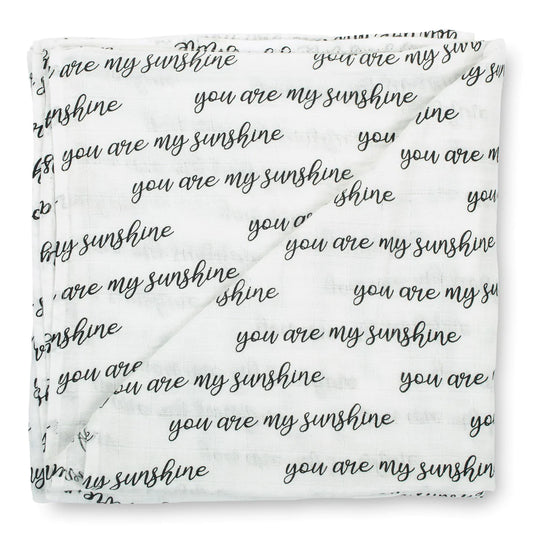 you are my sunshine
you are my sun
shine
you are my sunshine
you
ine
you are my sunshine
you are m
you are my sunshine
shine
you
my sunshine
you a
you are my sunshine
you are my sunshine
shine
you are my sun
nshine
you are my sunshine
you are
you are my sunshine
you are
you are my sunshine
you
my sunshine
you are my sunshin